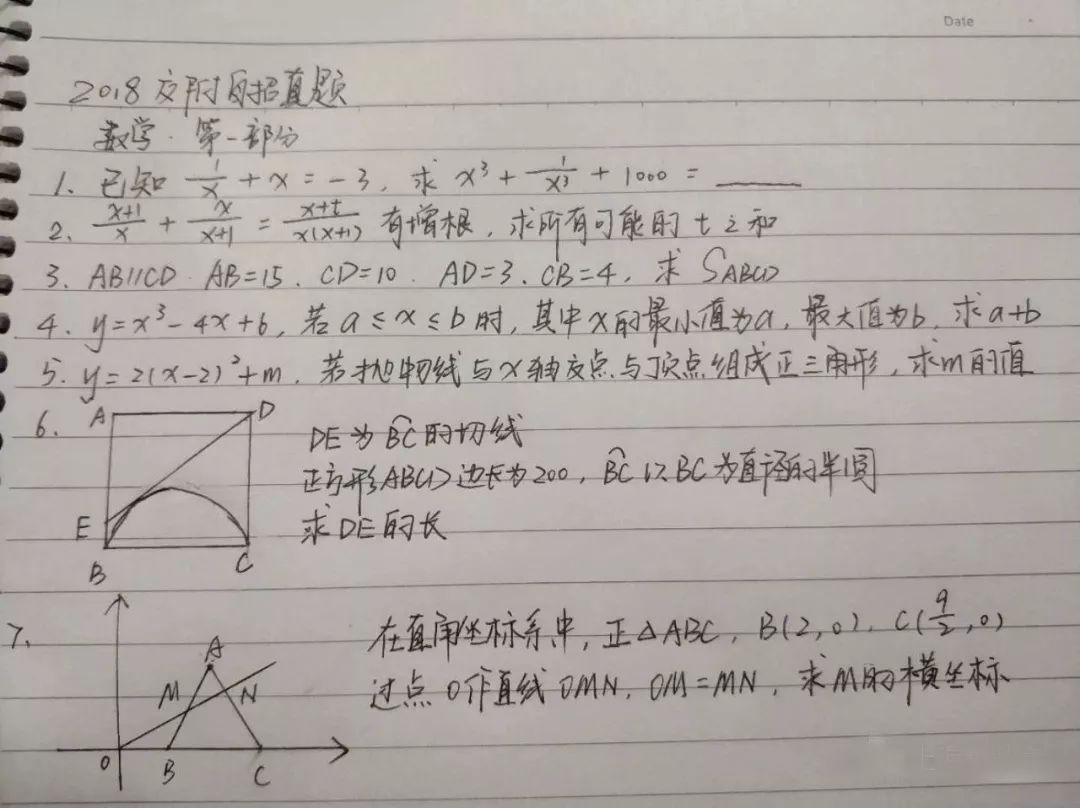 Date
2018交附自招真题
数学·第一部分
1. 已知 1/x + x = -3, 求 x³ + 1/x³ + 1000 = ____
2. (x+1)/x + x/(x+1) = (x+t)/(x(x+1)) 有增根, 求所有可能的 t 之和
3. AB//CD. AB=15. CD=10. AD=3. CB=4, 求 SABCD
4. y=x³-4x+6, 若 a≤x≤b 时, 其中x的最小值为a, 最大值为b, 求a+b
5. y=2(x-2)²+m, 若抛物线与x轴交点与顶点组成正三角形, 求m的值
6. A D
DE为BC的切线
正方形ABCD边长为200, BC以BC为直径的半圆
E
求DE的长
B C
7.
在直角坐标系中, 正△ABC, B(2,0). C(9/2,0)
A
过点O作直线OMN, OM=MN, 求M的横坐标
M N
O B C